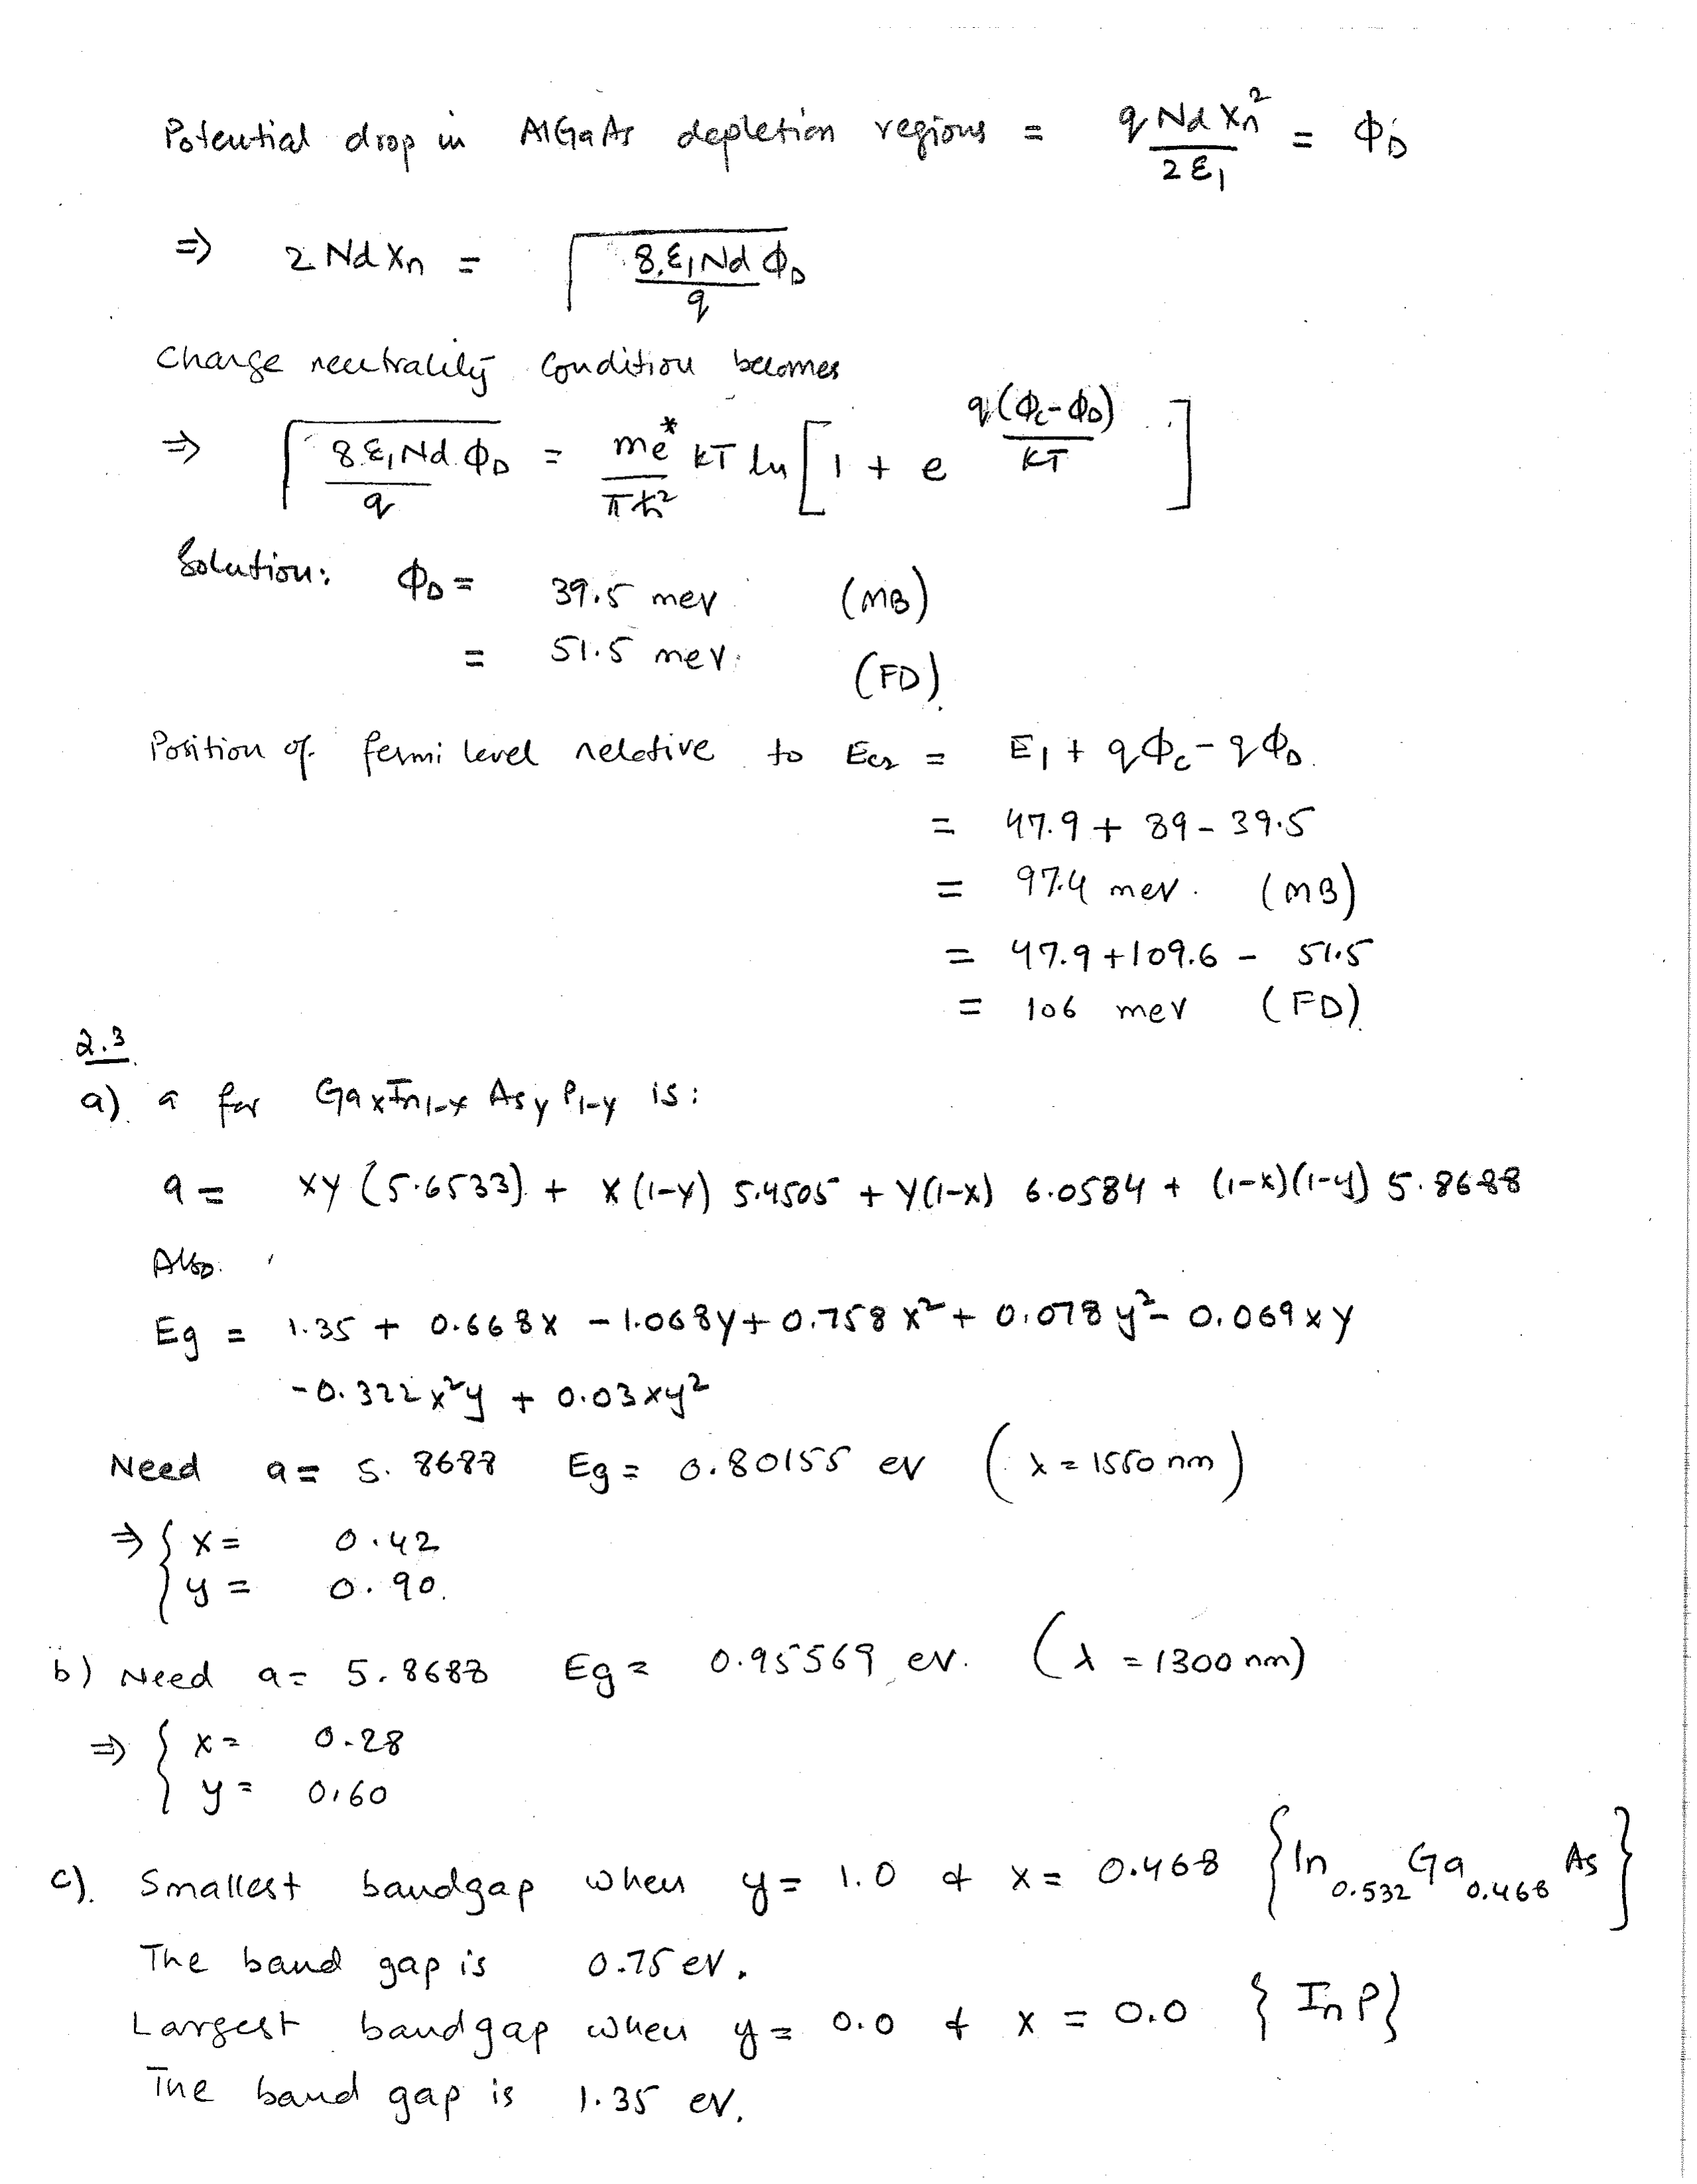 Potential drop in AlGaAs depletion regions = q Nd Xn² / 2 ε₁ = ϕD
⇒ 2 Nd Xn = √(8 ε₁ Nd ϕD / q)
Charge neutrality condition becomes
⇒ √(8 ε₁ Nd ϕD / q) = me* / πħ² KT ln [ 1 + e^(q(ϕc - ϕD) / KT) ]
Solution: ϕD = 39.5 meV (MB)
= 51.5 meV. (FD)
Position of fermi level relative to Ec2 = E1 + qϕc - qϕD.
= 47.9 + 89 - 39.5
= 97.4 meV. (MB)
= 47.9 + 109.6 - 51.5
= 106 meV (FD)
2.3
a). a for GaxIn1-x Asy P1-y is:
a = xy (5.6533) + x (1-y) 5.4505 + y(1-x) 6.0584 + (1-x)(1-y) 5.8688
Also.
Eg = 1.35 + 0.668x - 1.068y + 0.758 x² + 0.078 y² - 0.069 xy
-0.322 x²y + 0.03xy²
Need a = 5.8688 Eg = 0.80155 eV (λ = 1550 nm)
⇒ { x = 0.42
y = 0.90.
b) Need a = 5.8688 Eg = 0.95569 eV. (λ = 1300 nm)
⇒ { x = 0.28
y = 0.60
c). Smallest bandgap when y = 1.0 & x = 0.468 {In0.532 Ga0.468 As}
The band gap is 0.75 eV.
Largest bandgap when y = 0.0 & x = 0.0 {InP}
The band gap is 1.35 eV.